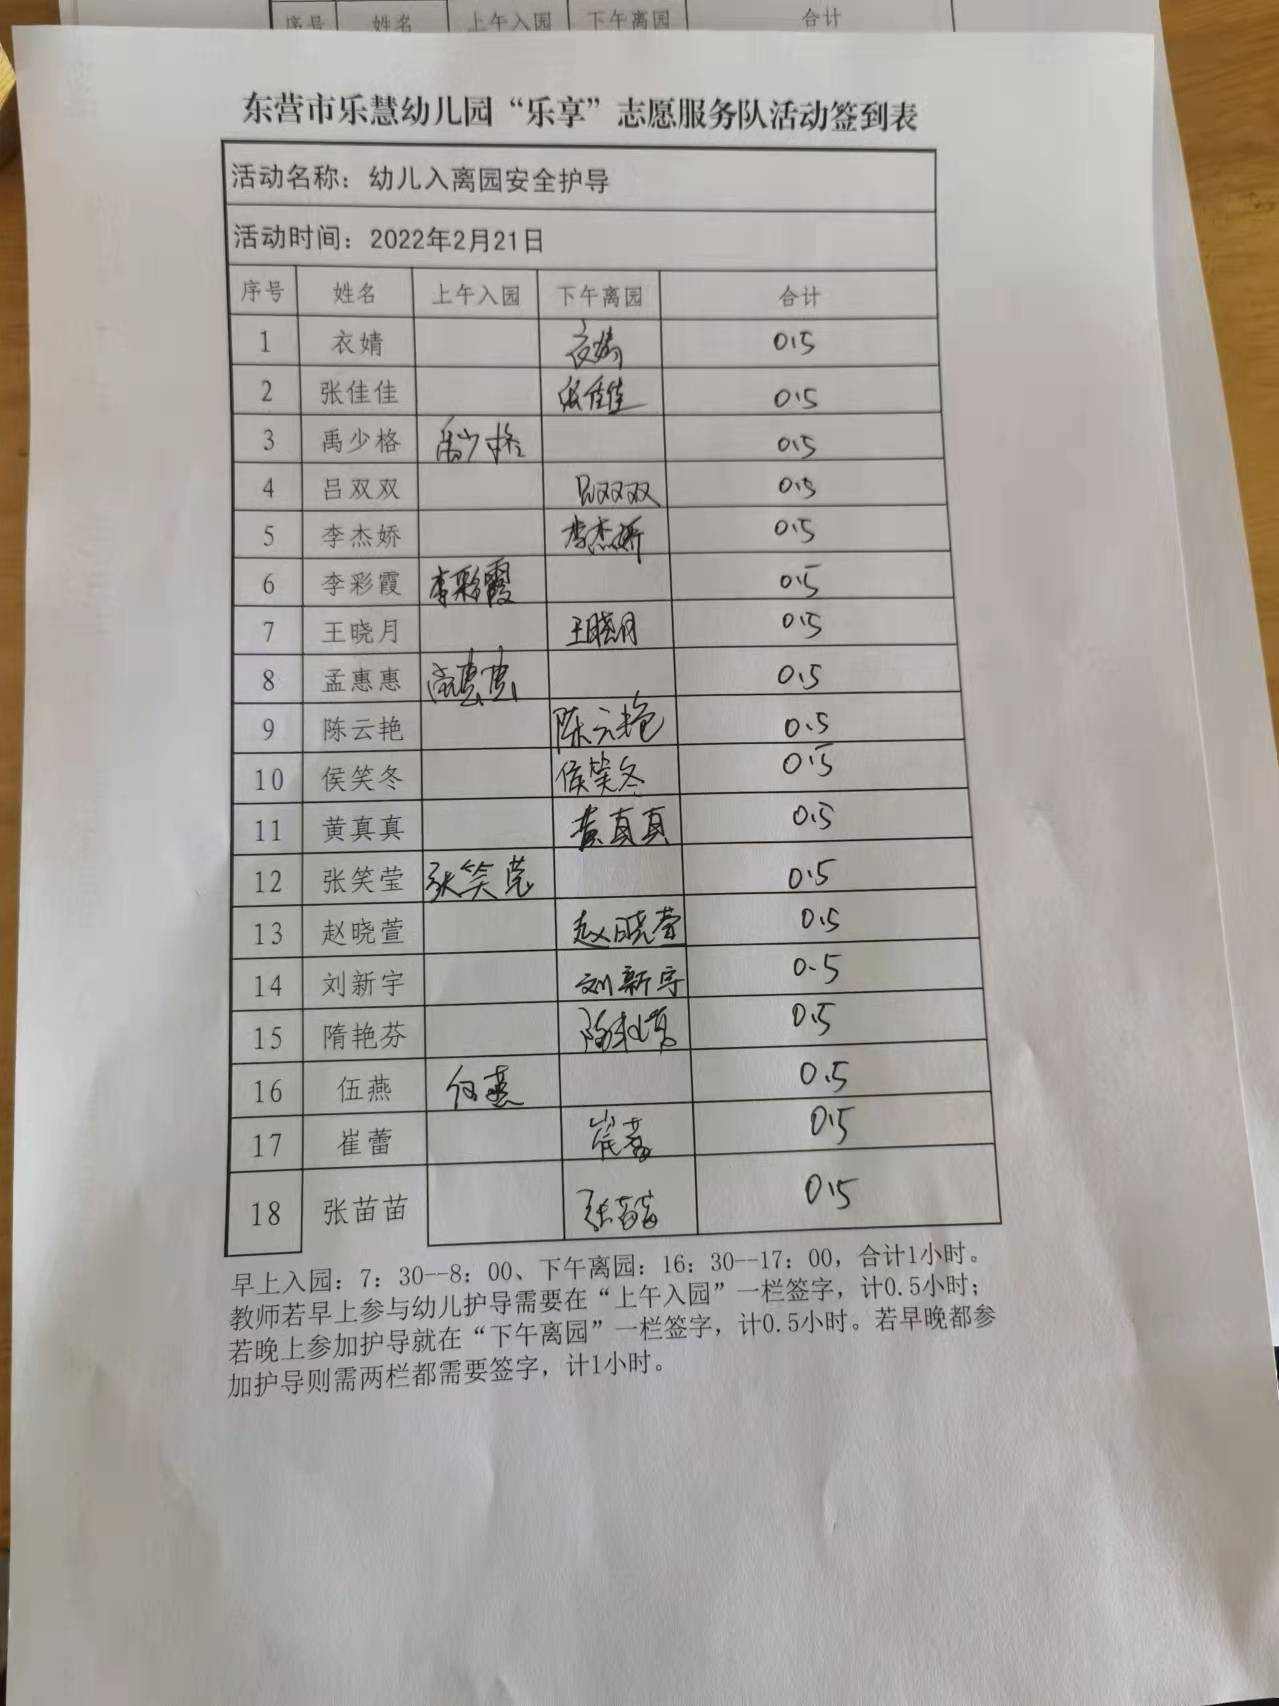 序号 姓名 上午入园 下午离园 合计
东营市乐慧幼儿园“乐享”志愿服务队活动签到表
活动名称：幼儿入离园安全护导
活动时间：2022年2月21日
序号 姓名 上午入园 下午离园 合计
1 衣婧 衣婧 0.5
2 张佳佳 张佳佳 0.5
3 禹少格 禹少格 0.5
4 吕双双 吕双双 0.5
5 李杰娇 李杰娇 0.5
6 李彩霞 李彩霞 0.5
7 王晓月 王晓月 0.5
8 孟惠惠 孟惠惠 0.5
9 陈云艳 陈云艳 0.5
10 侯笑冬 侯笑冬 0.5
11 黄真真 黄真真 0.5
12 张笑莹 张笑莹 0.5
13 赵晓萱 赵晓萱 0.5
14 刘新宇 刘新宇 0.5
15 隋艳芬 隋艳芬 0.5
16 伍燕 伍燕 0.5
17 崔蕾 崔蕾 0.5
18 张苗苗 张苗苗 0.5
早上入园：7：30--8：00、下午离园：16：30--17：00，合计1小时。
教师若早上参与幼儿护导需要在“上午入园”一栏签字，计0.5小时；
若晚上参加护导就在“下午离园”一栏签字，计0.5小时。若早晚都参
加护导则需两栏都需要签字，计1小时。